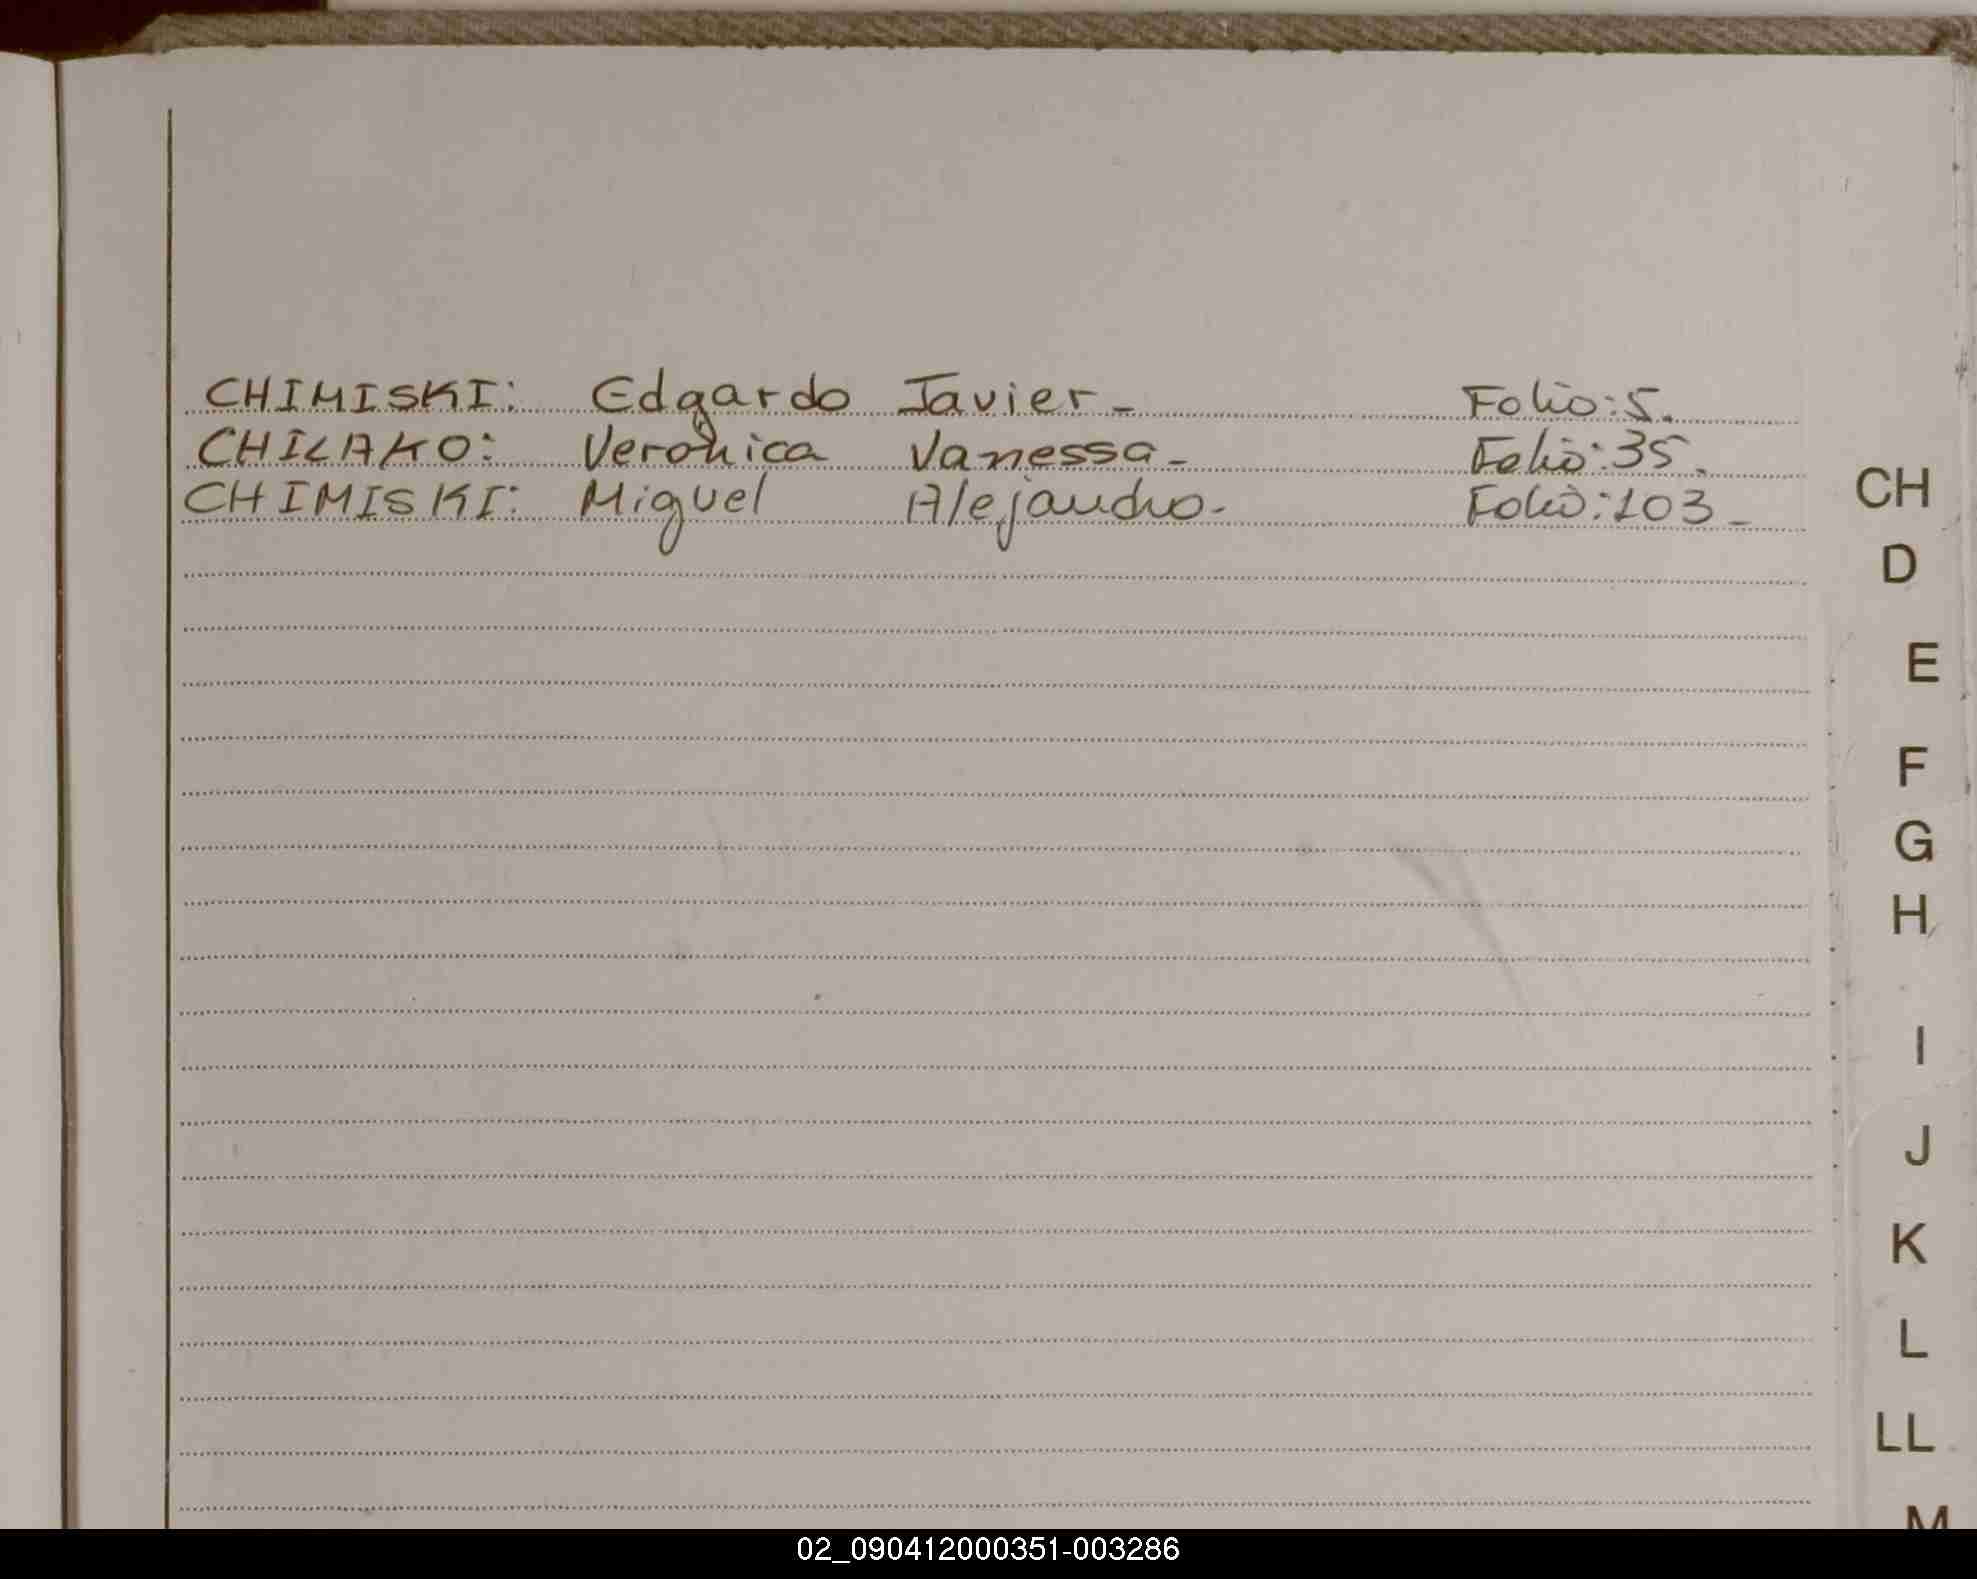 CHIMISKI: Edgardo Javier - Folio: 5.
CHILAKO: Veronica Vanessa - Folio: 35.
CHIMISKI: Miguel Alejandro - Folio: 103 -
CH
D
E
F
G
H
I
J
K
L
LL
M
02_090412000351-003286